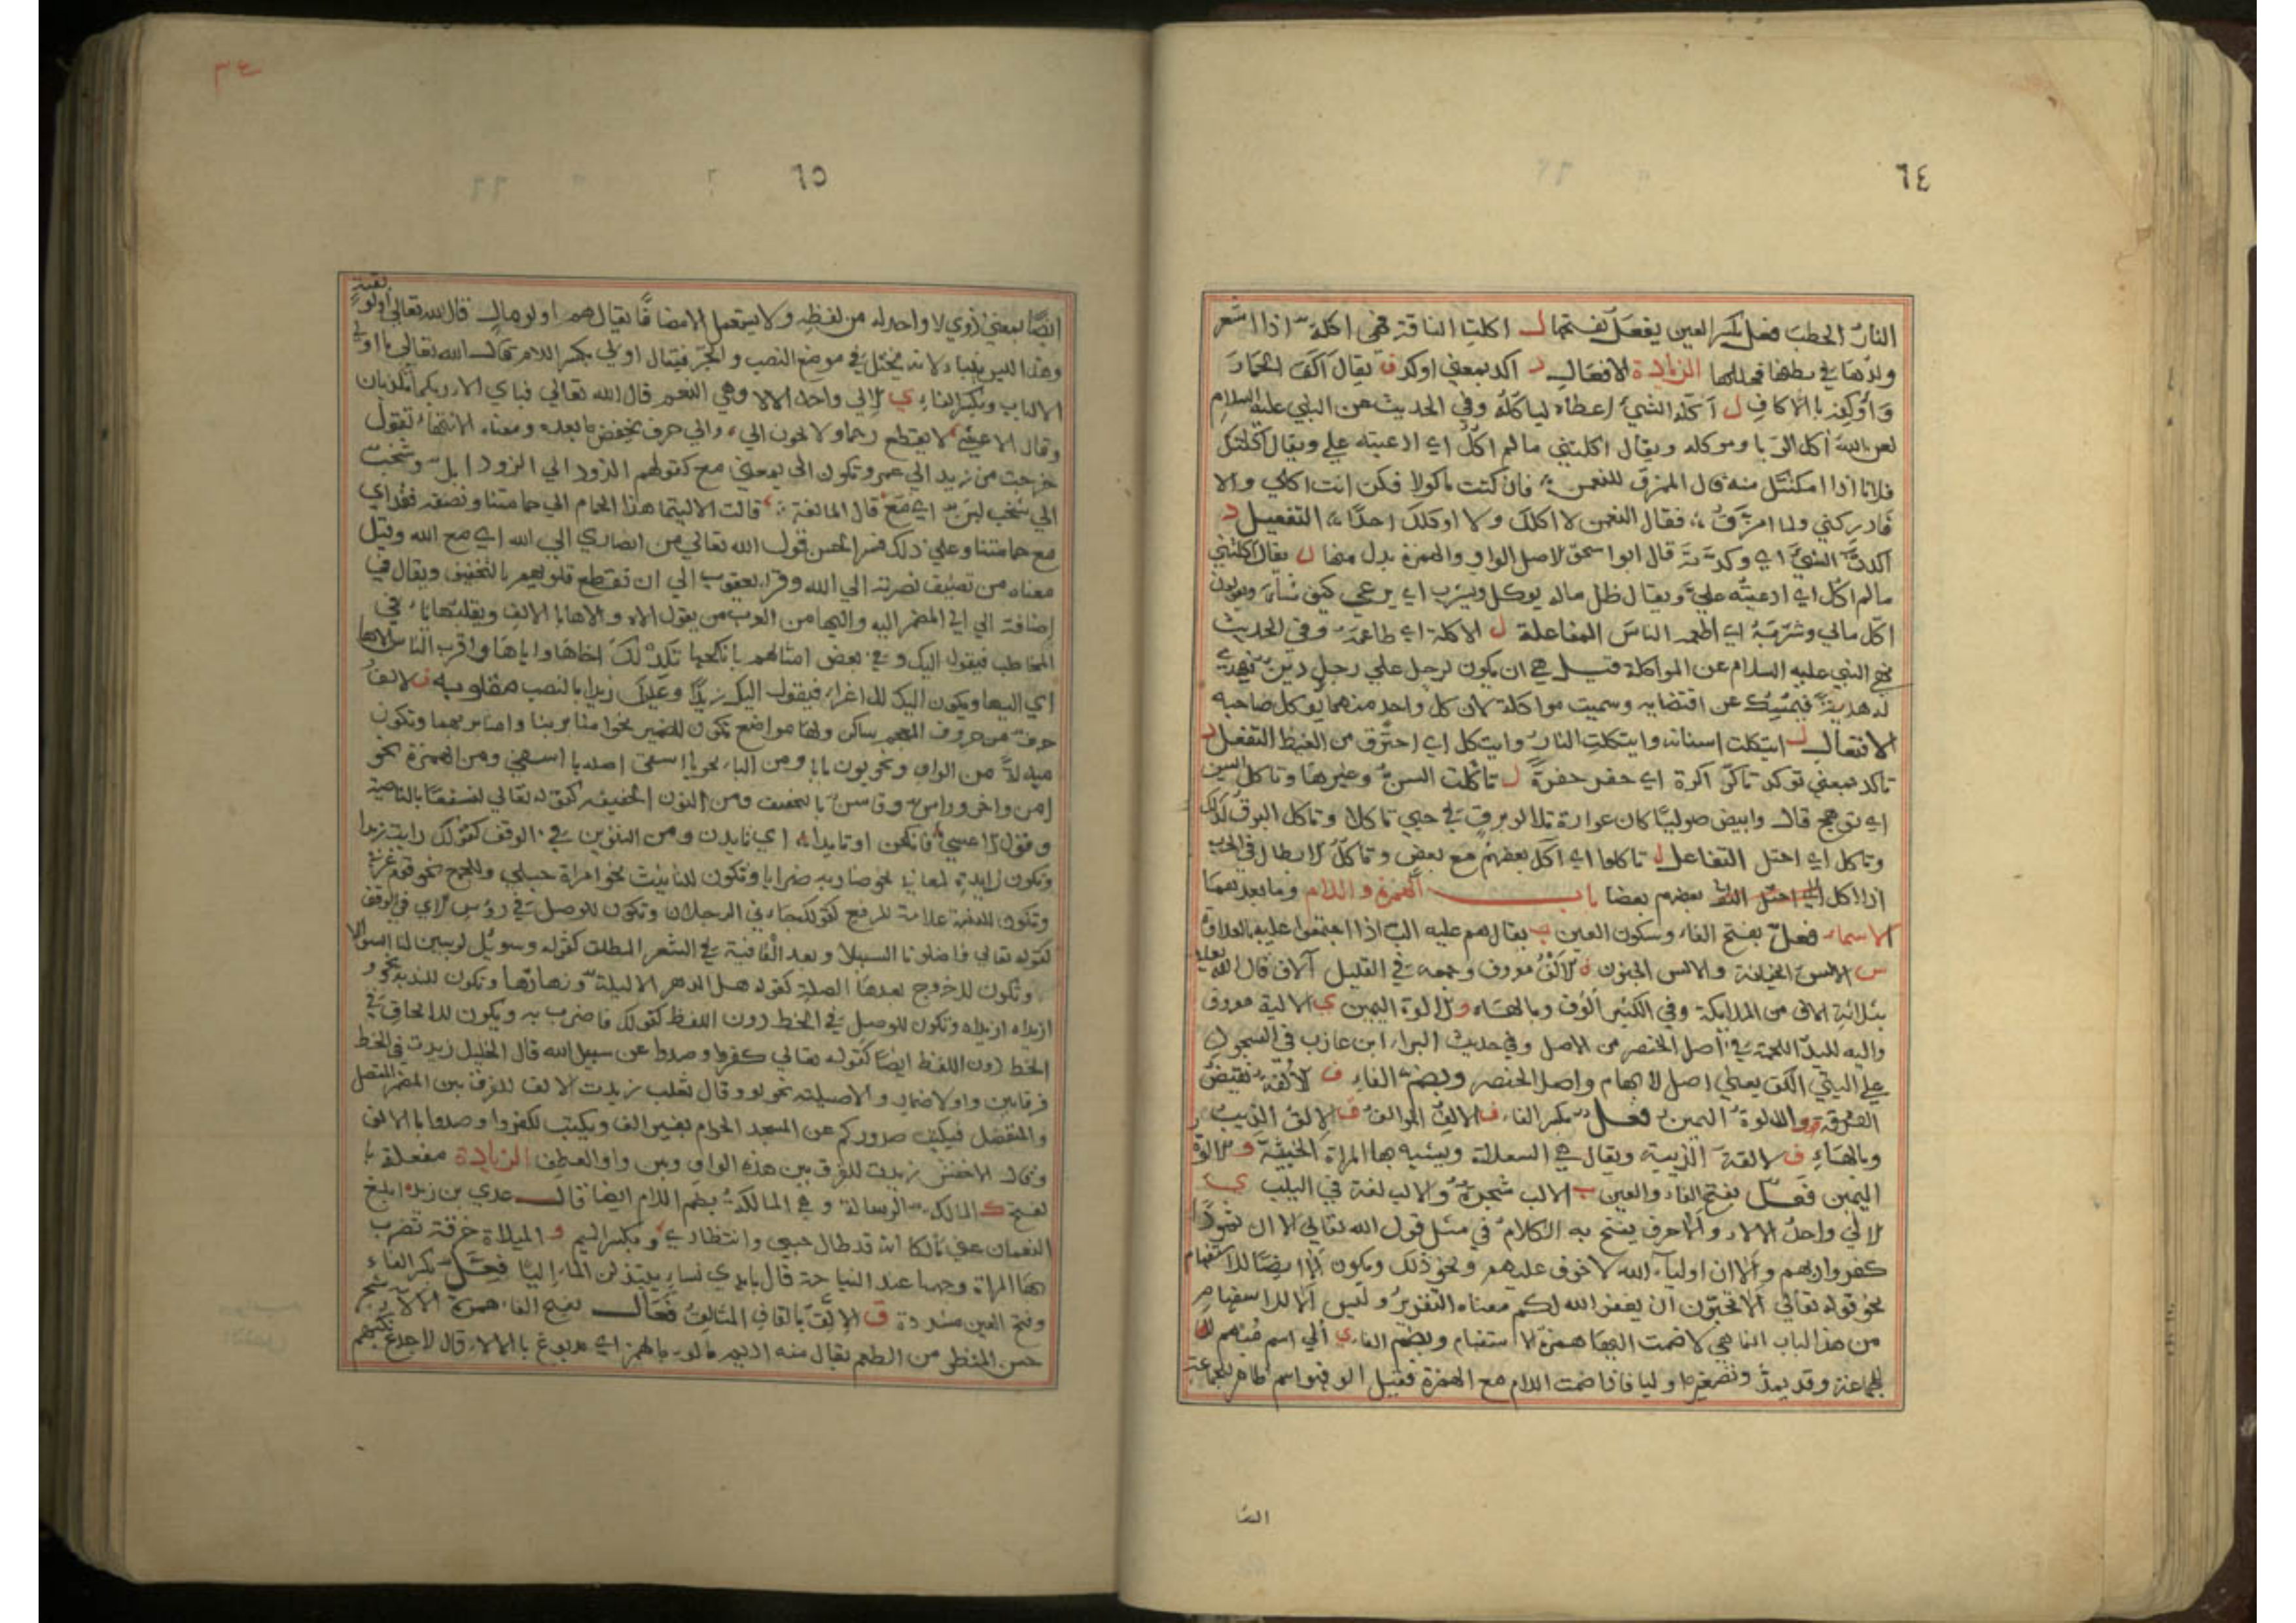 ٦٤
النارُ الحطبَ فعل بكسر العين يفعَل بفتحها ل اكلتِ الناقة فهي اكلة اذا اشعر
ولدها في بطنها فحكها الزيادة الافعال د آكد بمعنى اوكد ف يقال آكف الحمارَ
وَأوكفه بالاكافِ ل آكله الشئَ اعطاه لياكله وفي الحديث عن النبي عليه السلام
لعن الله آكل الربا وموكله ويقال اكلتني مالم اكل اي ادعيته علي ويقال آكلتك
فلانا اذا امكنتك منه قال الممزق للنعمن فان كنت ماكولا فكن انت اكلي والا
فادركني ولما امزق فقال النعمن لا اكلك ولا اوكلك احدًا التفعيل د
اكدتُ الشئَ اي وكدته قال ابو اسحق الاصل الواو والهمزة بدل منها ل يقال اكلتني
مالم اكل اي ادعيته علي ويقال ظل مالي يوكل ويشرب اي يرعى كيف شاء ويقولون
اكّل مالي وشربه اي اطعمه الناسَ المفاعلة ل الاكلة اي طاعمه وفي الحديث
نهى النبي عليه السلام عن المواكلة قيل هي ان يكون لرجل على رجل دين فيهدي
له هدية فيمسك عن اقتضايه وسميت مواكلة لان كل واحد منهما يوكل صاحبه
الافتعال ل ايتكلت اسنانه وايتكلتِ النارُ وايتكل اي احترق من الغيظ التفعل د
تاكد بمعنى توكد تاكر اكرة اي حفر حفرةً ل تاكلت السن وغيرها وتاكل السيف
اي توهج قال وابيض صوليا كان غراره تلالو برقٍ في حبي تاكلا وتاكل البرق كذلك
وتاكل اي احتل التفاعل ل تاكلوا اي اكل بعضهم مع بعض وتاكل الابطال في الحرب
اذا اكل بعضهم بعضا باب الهمزة واللام وما بعدهما
الاسماء فعل بفتح الفاء وسكون العين ب يقال هم عليه الب اذا اجتمعوا عليه بالعداوة
س الالس الخيانة والالس الجنون ف الالف معروف وجمعه في القليل آلاف قال الله تعالى
بثلاثة الاف من الملايكة وفي الكثير ألوف وبالهاء و الالوة اليمين ي الالية معروف
والية اليد اللحمة في اصل الخنصر من الاصل وفي حديث البراء ابن عازب في السجود
على اليتي الكف يعني اصل الابهام واصل الخنصر وبضم الفاء ف الألفة نقيض
الفرقة و والالوة اليمين فعل بكسر الفاء ف الالف الموالف ق الالق الذيب
وبالهاء ق الالقة الذيبة ويقال هي السعلاة ويشبه بها المراة الخبيثة و الالوة
اليمين فعل بفتح الفاء والعين ب الالب شجرة والالب لغة في اليلب ي
الالي واحد الالاء والا حرف يفتح به الكلامُ في مثل قول الله تعالى الا ان ثمودَا
كفروا ربهم وألا ان اولياء الله لا خوف عليهم ونحو ذلك ويكون ألا ايضًا للاستفهام
نحو قوله تعالى الا تحبون ان يغفر الله لكم معناه التقرير وليس ألا للاستفهام
من هذا الباب انما هي لا ضمت اليها همزة الاستفهام وبضم الفاء ي ألي اسم مبهم
للجماعة وقد يمد وتصغيره اوليا فاذا ضمت اللام مع الهمزة فقيل الو فهو اسم ظاهر للجماعة
الضا
٦٥
ايضًا بمعنى ذوي لا واحد له من لفظِهِ ولا يستعمل الا مضافًا يقال هم اولو مال قال الله تعالى أولو
بقية
وهذا الليس بفباد لانه يختل في موضع النصب والجر فيقال اولي بكسر اللام قال الله تعالى يا اولي
الالباب وبكسر الفاء ي الالى واحد الالا وهي النعم قال الله تعالى فباي الاء ربكما تكذبان
وقال الاعشى لا يقطع رحما ولا يخون الى والى حرف يخفض ما بعده ومعناه الانتهاءُ تقول
خرجت من زيد الى عمرو وتكون الى بمعنى مع كقولهم الذود الى الذود ابل وشخب
الى شخب لبن اي مع قال النابغة قالت الا ليتما هذا الحمام الى حمامتنا ونصفه فقد اي
مع حمامتنا وعلى ذلك فسر الحسن قول الله تعالى من انصاري الى الله اي مع الله وقيل
معناه من تضيف نصرته الى الله وقرا يعقوب الى ان تقطع قلوبهم بالتخفيف ويقال في
اضافة الى الى المضمر اليه واليها ومن العرب من يقول الاه والاها بالالف ويقلبها ياء في
المخاطب فيقول اليك وفي بعض امثالهم
اي اليها ويكون اليك للاغراء فيقول اليك زيدًا وعليك زيدا بالنصب مقلوبه ف الالف
حرف من حروف المعجم ساكن ولها مواضع تكون للضمير نحو اضربا وتكون
مبدلة من الواو ونحو يون بابا ومن الياء نحو يا اسفى اصله يا اسفي ومن الهمزة نحو
امن واخر وراس وفاس بالتخفيف ومن النون الخفيفة كقوله تعالى لنسفعا بالناصية
وقول الاعشى اي فاعبدن ومن التنوين في الوقف كقولك رايت زيدا
وتكون زايدة لمعاني نحو ضاربه ضرابا وتكون للتانيث نحو امراة حبلى وللجمع نحو قوم
وتكون للتثنية علامة للرفع كقولك جاءني الرجلان وتكون للوصل في روس الاي في الوقف
كقوله تعالى فاضلونا السبيلا وبعد القافية في الشعر المطلق كقوله
وتكون للخروج بعدها الصلة كقوله هل الدهر الا ليلة ونهارها وتكون للندبة نحو
ازيداه ازيداه وتكون للوصل في الخط دون اللفظ كقولك فاضرب به ويكون للالحاق في
الخط دون اللفظ ايضا كقوله تعالى كفروا وصدوا عن سبيل الله قال الخليل زيدت في الخط
فرقا بين واو الاضمار والاصلية نحو لو وقال ثعلب زيدت الالف للفرق بين المضمر المتصل
والمنفصل فيكتب صدوركم عن المسجد الحرام بغير الف ويكتب كفروا وصدوا بالالف
وقال الاخفش زيدت للفرق بين هذه الواو وبين واو العطف الزيادة مفعلة با
لفتح ك المالكة الرسالة وهي المالكة بضم اللام ايضا قال عدي بن زيد ابلغ
النعمان عني مالكا انه قد طال حبسي وانتظاري وبكسر الميم و الميلاة خرقة تضرب
بها المراة وجهها عند النياحة قال فعل بكسر الفاء
وفتح العين مشددة ق الالق بالقاف المتالق فعال بفتح الفاء همزة الالاء شجر
حسن المنظر من الطعم يقال منه اديم مالوء بالهمز اي مدبوغ بالالاء قال